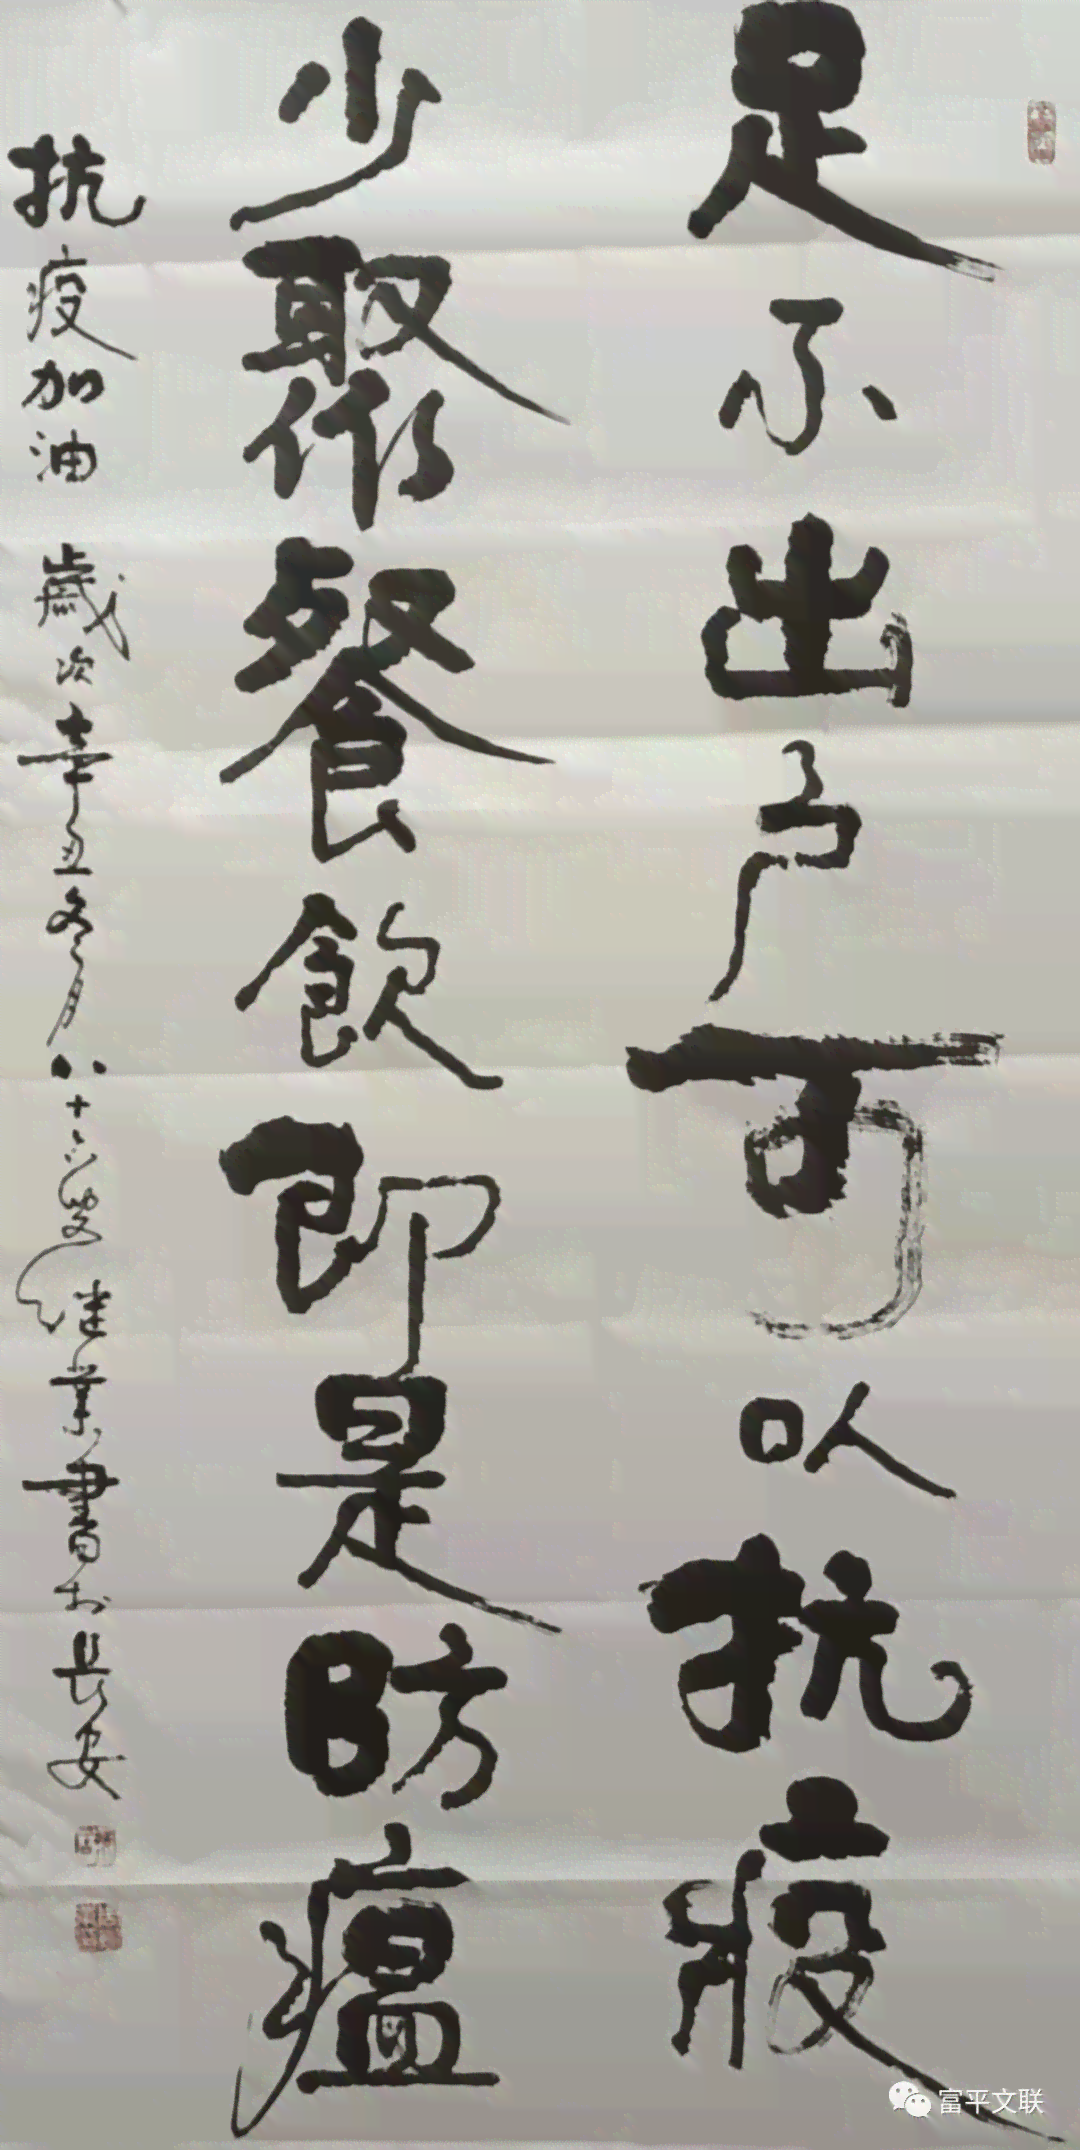 足不出户可以抗疫
少聚餐飲即是防瘟
抗疫加油 歲次辛丑冬月八十六叟继業書於長安
富平文联